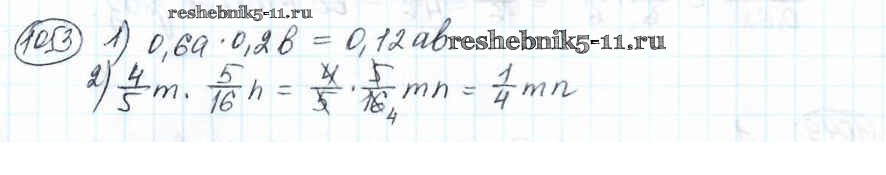 reshebnik5-11.ru
1053 1) 0,6a · 0,2b = 0,12ab reshebnik5-11.ru
2) 4/5 m · 5/16 n = 4/5 · 5/16 4 mn = 1/4 mn